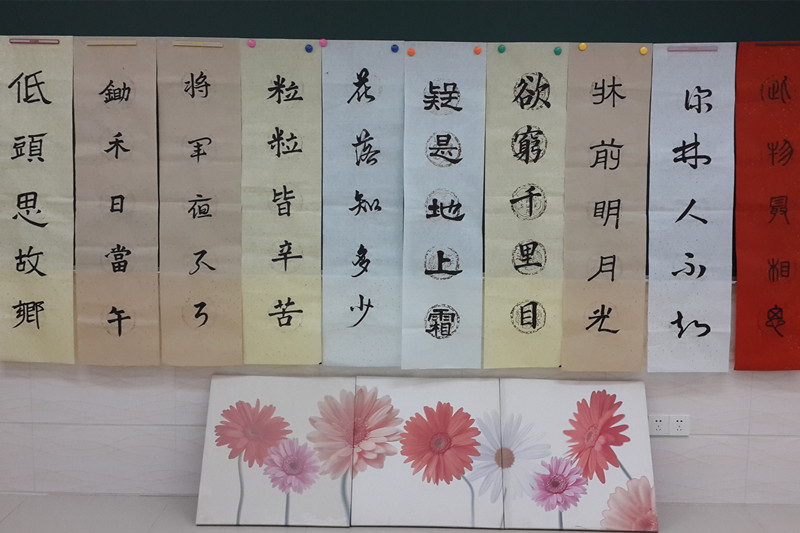 低頭思故鄉
鋤禾日當午
將軍夜引弓
粒粒皆辛苦
花落知多少
疑是地上霜
欲窮千里目
牀前明月光
深林人不知
此物最相思